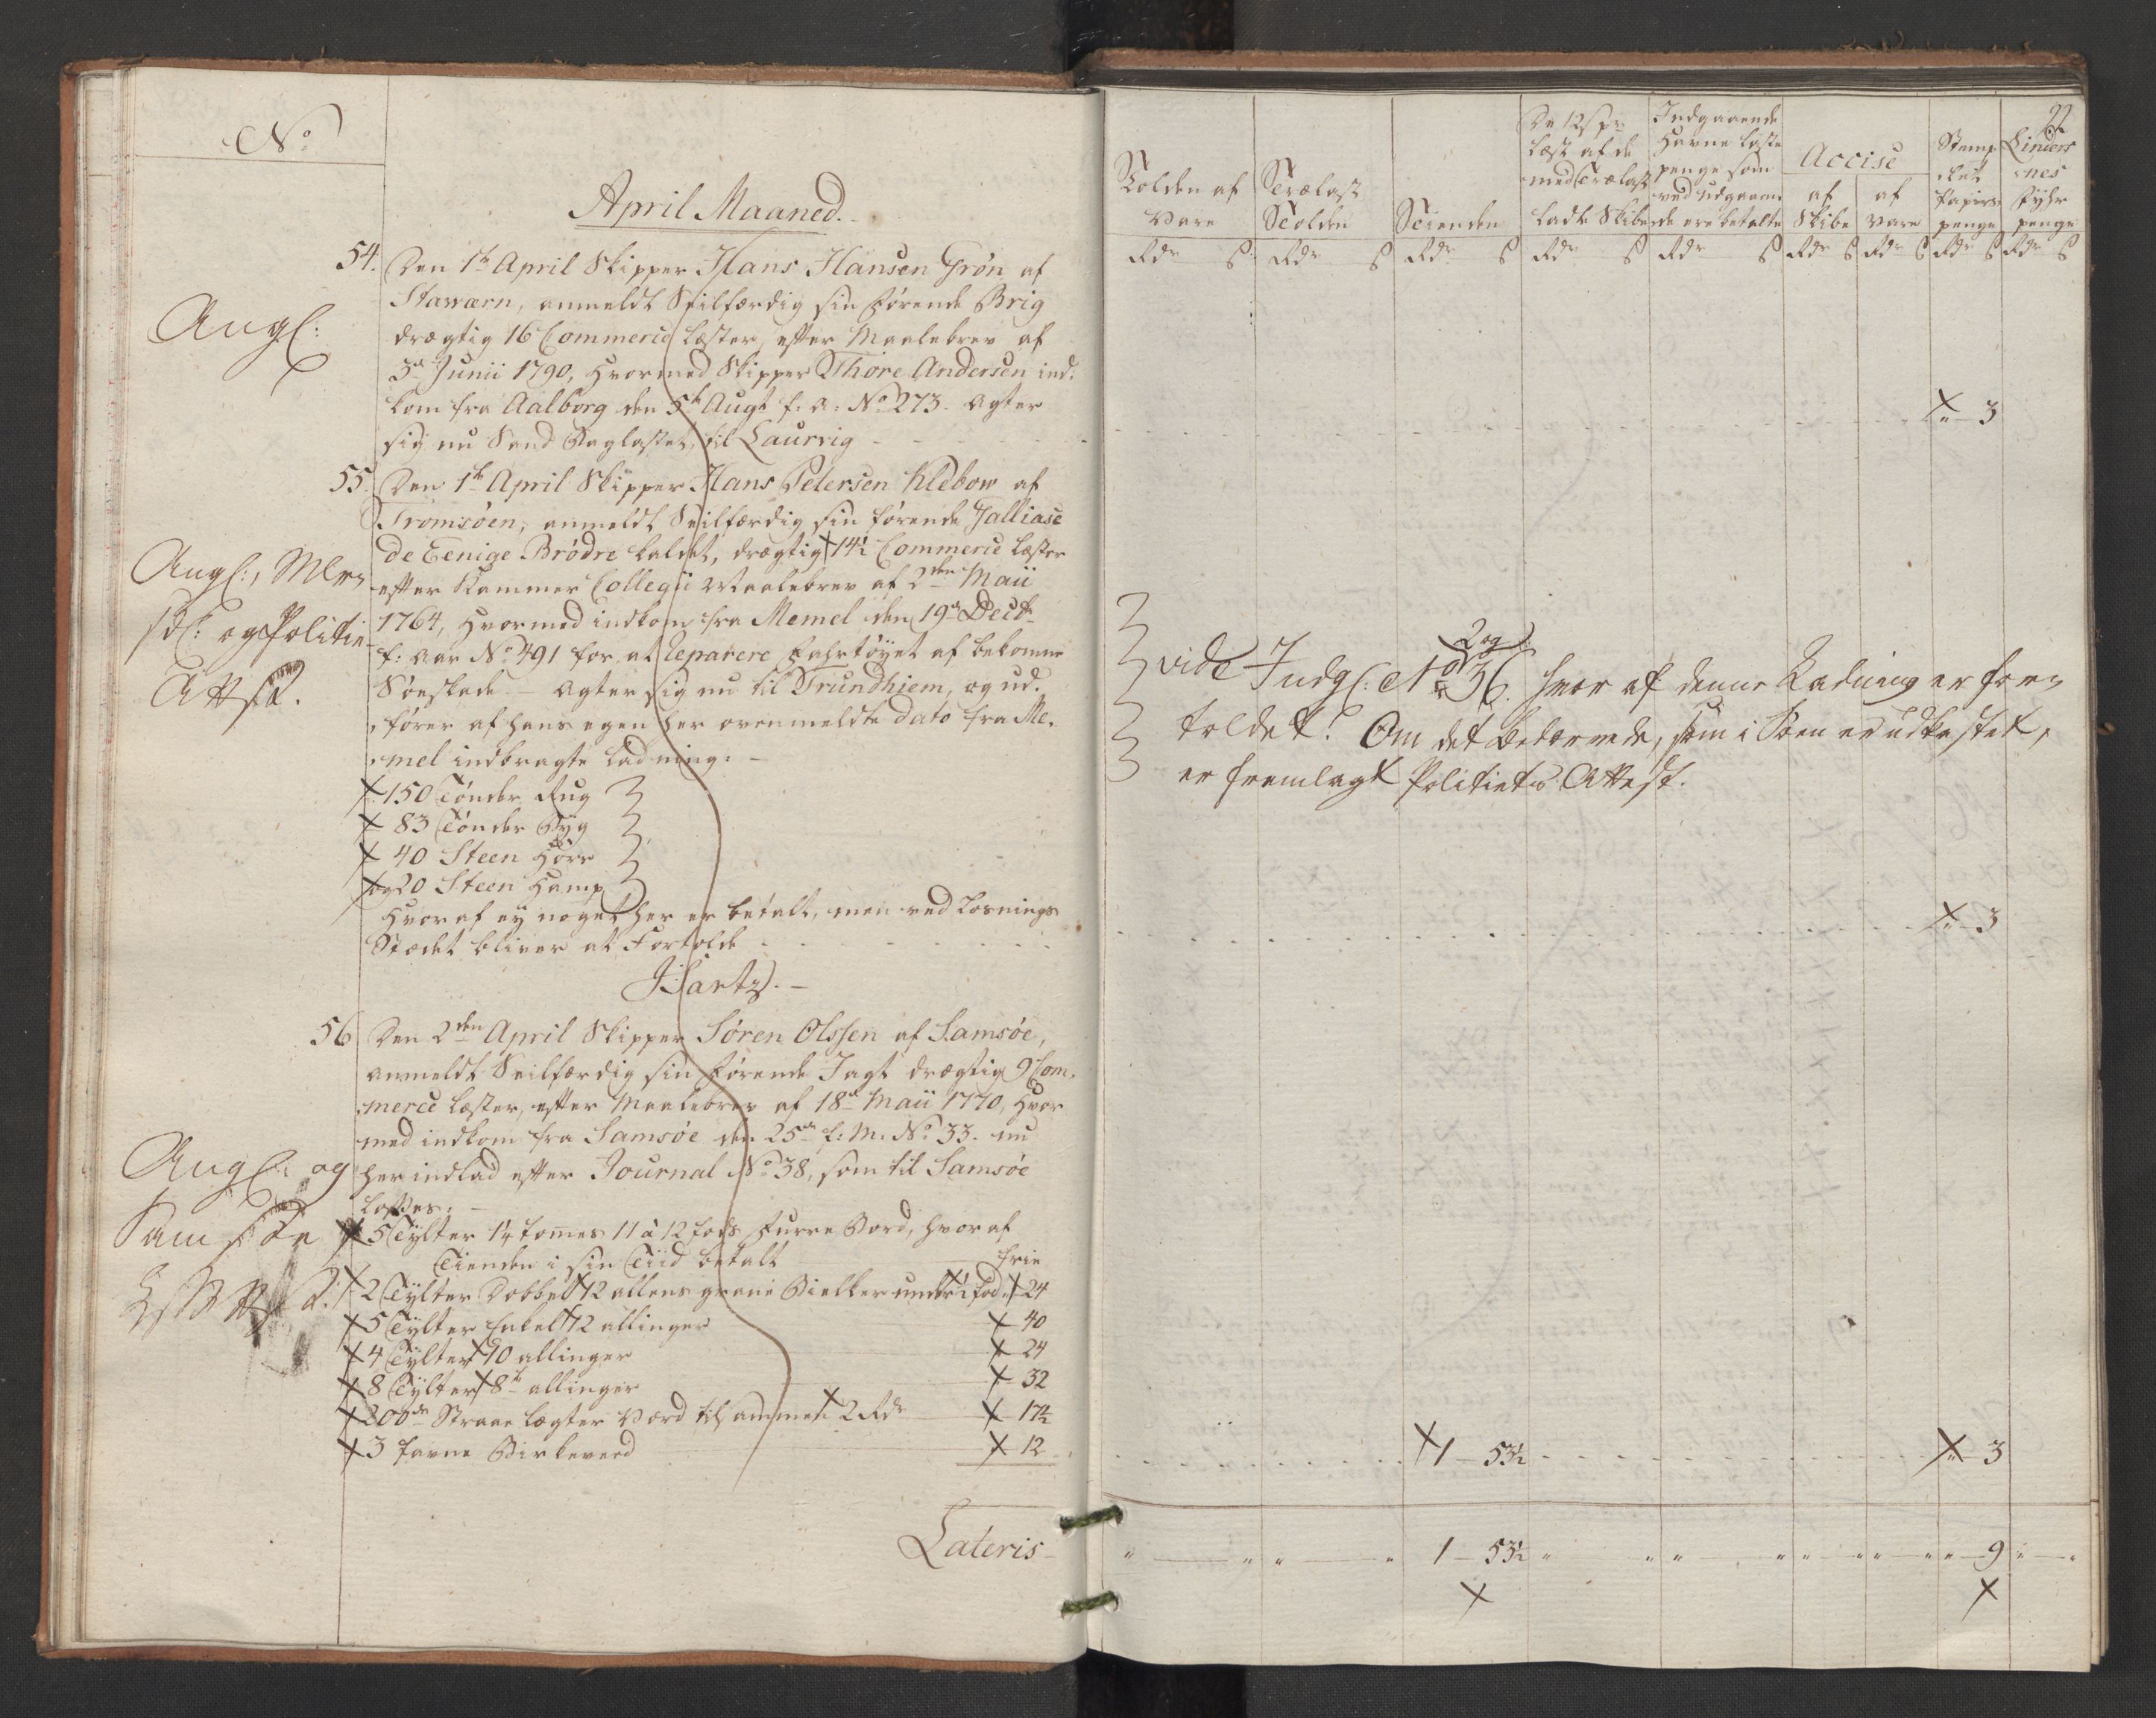 No
April Maaned.
54. Den 1te April Skipper Hans Hansen Grøn af
Stawærn, anmeldt Seilfærdig sin førende Brig
drægtig 16 Commerce Læster, efter Maalebrev af
3de Junii 1790, hvormed Skipper Thore Andersen ind-
kom fra Aalborg den 5te Augt f: a: No 273. agter
sig nu Sand Baglastet, til Laurvig
Angl:
55. Den 1te April Skipper Hans Petersen Klebow af
Tromsøen, anmeldt Seilfærdig sin førende Jalliase
De Eenige Brødre kaldet, drægtig 14½ Commerce Læster
efter Kammer Collegii Maalebrev af 2den Maii
1764, hvormed indkom fra Memel den 19de Decbr
f: Aar No 491 for at reparere Fahrtøyet af bekomne
Søeskade – agter sig nu til Trundhiem, og ud-
fører af hans egen her ovenmeldte dato fra Me-
mel indbragte Ladning:
Angl:,
og Politie
Attst.
150 Tønder Rug
83 Tønder Byg
40 Steen Hørr
og 20 Steen Hamp
hvoraf ey noget her er betalt, men ved Losnings
Stædet bliver at Fortolde
Hartz.
56 Den 2den April Skipper Søren Olssen af Samsøe,
anmeldt Seilfærdig sin førende Jagt drægtig 9 Com-
merce Læster, efter Maalebrev af 18de Maii 1770, hvor
med indkom fra Samsøe den 25de f: M: No 33. nu
her indlad efter Journal No 38, som til Samsøe
losses:
Angl: og
Samsøe
5 Tylter 1¼ tommes 11 à 12 fods Furre Bord, hvoraf
Tienden i sin Tiid betalt frie
2 Tylter Dobbelt 12 allens grane Bielker under ½ fod 24
5 Tylter Enkelt 12 allinger 40
4 Tylter 10 allinger 24
8 Tylter 8te allinger 32
200de Straae Lægter Værd tilsammen 2 Rdr 17½
3 favne Birkeveed 12
Lateris
22
Tolden af Vare
Trælast Tolden
Tienden
De 12 s pr Læst af de med Trælast ladte Skibe
Indgaaende Havne Læste penge som ved udgaaende ere betalte
Accise
af Skibe
af Vare
Stemplet Papiirs penge
Linders nes Fyhr penge
Rdr s Rdr s Rdr s Rdr s Rdr s Rdr s Rdr s Rdr s Rdr s
" 3
vide Indg: No 2 og 36. hvor af denne Ladning er for-
toldet. Om det bedærvede, som i Søen er udkastet,
er fremlagt Politiets Attest.
" 3
1 – 53½ " 3
" " " " 1 – 53½ " " " " " " " " 9 " "